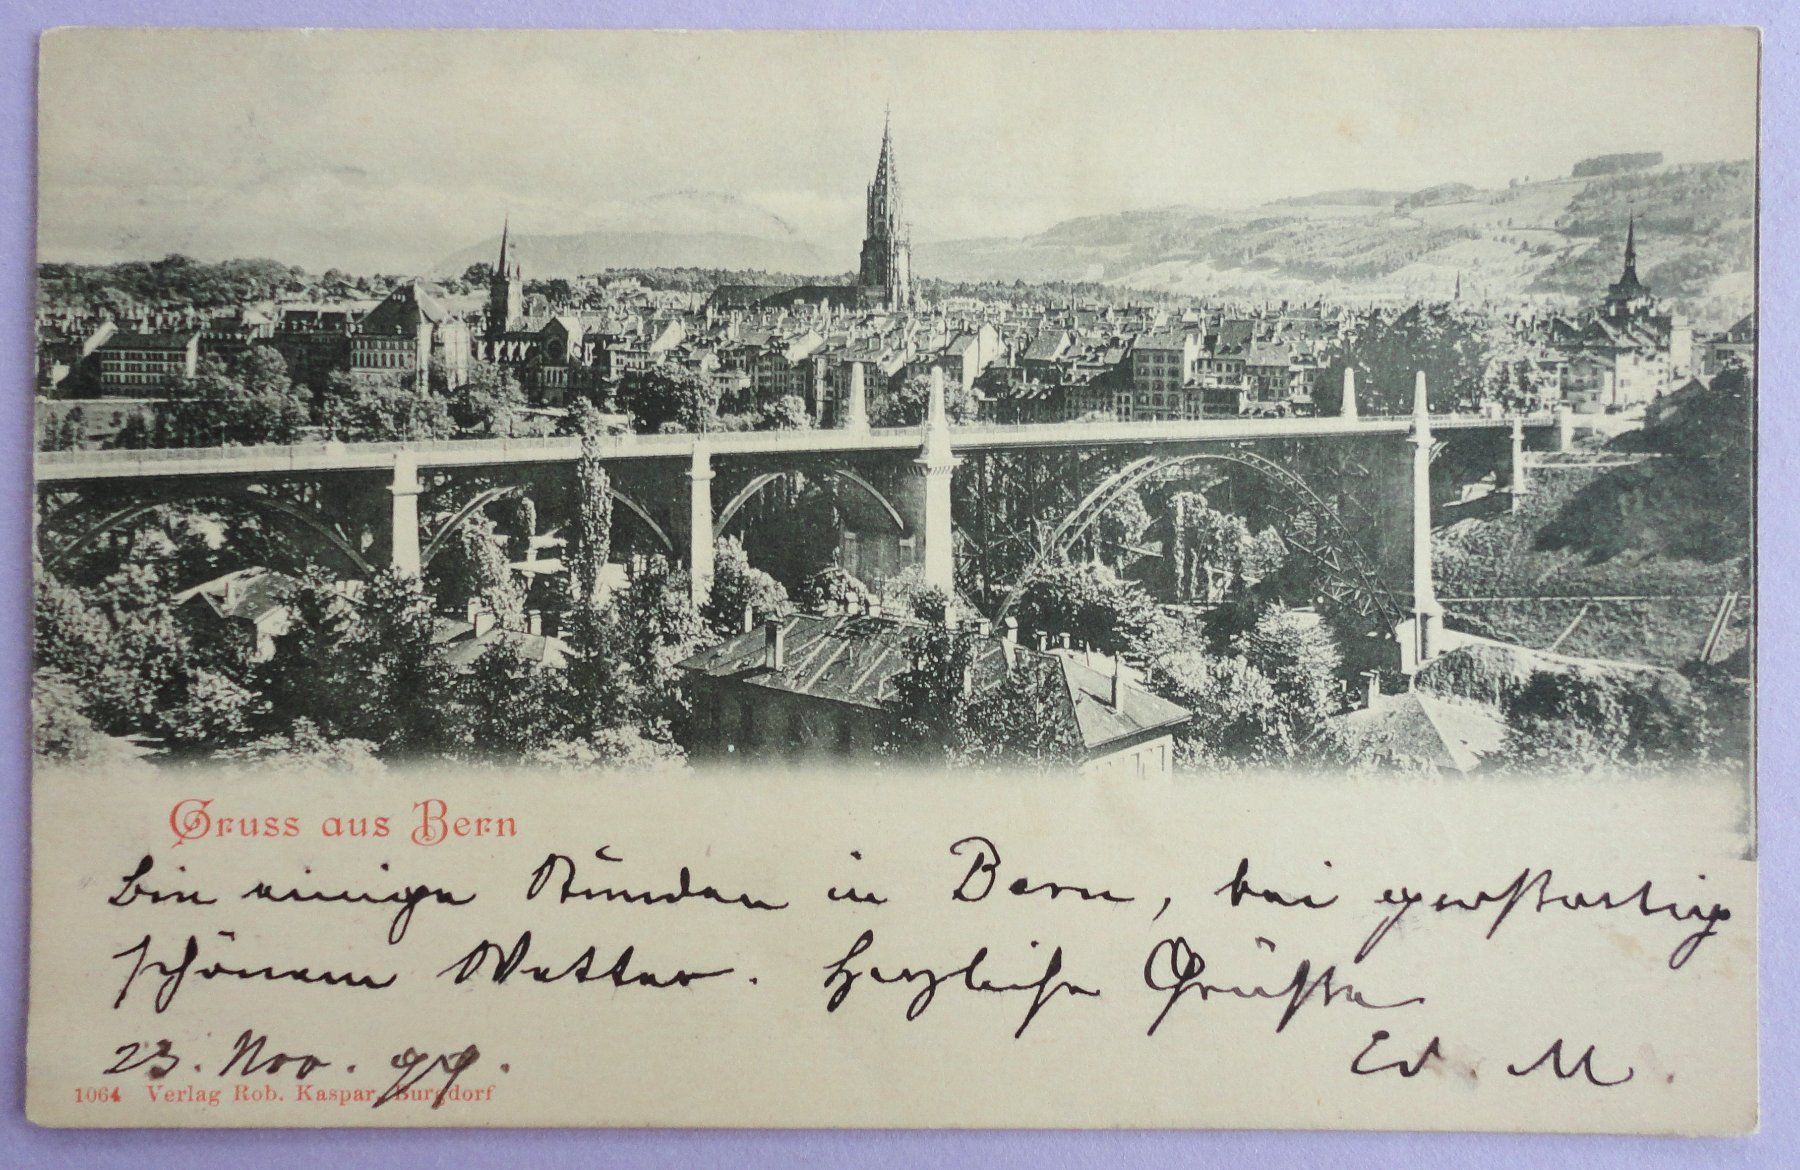 Gruss aus Bern
Bin einige Stunden in Bern, bei großartig
schönem Wetter. Herzliche Grüße
23. Nov. 99. Ed. M.
1064 Verlag Rob. Kaspar, Burgdorf